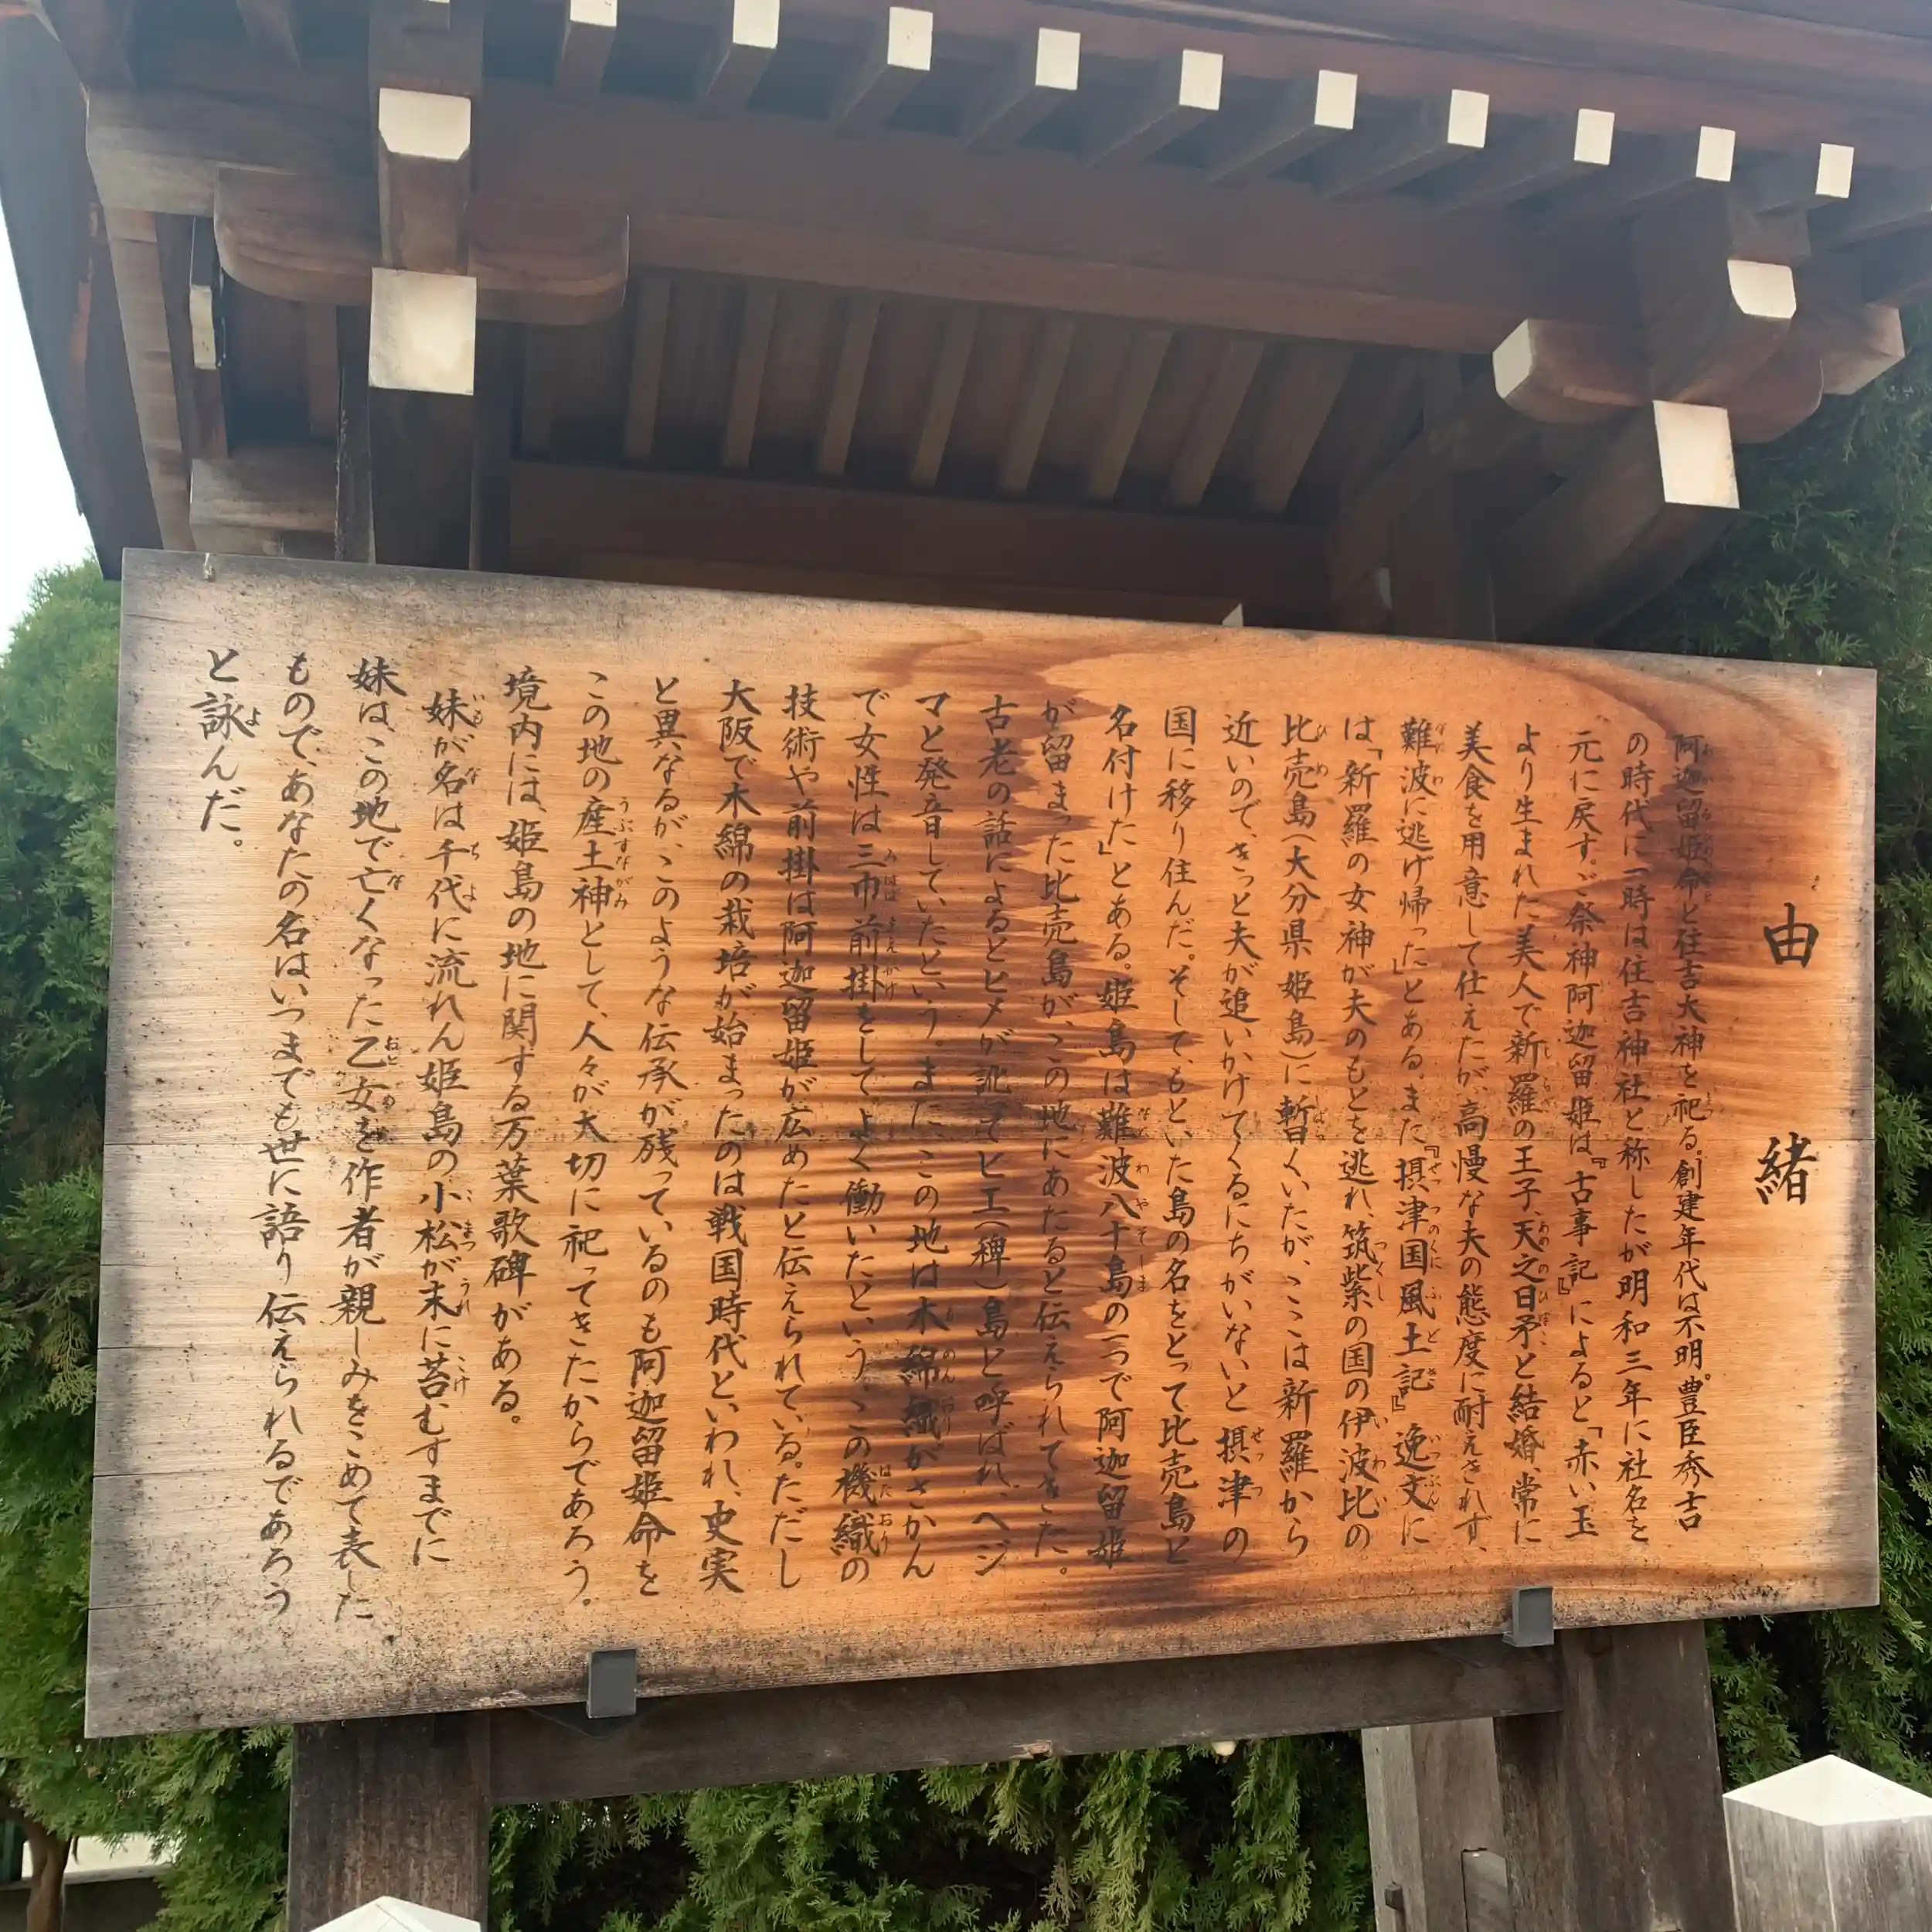 由緒
阿迦留姫命と住吉大神を祀る。創建年代は不明。豊臣秀吉
の時代に一時は住吉神社と称したが明和三年に社名を
元に戻す。ご祭神阿迦留姫は『古事記』によると「赤い玉
より生まれた美人で新羅の王子、天之日矛と結婚、常に
美食を用意して仕えたが、高慢な夫の態度に耐えきれず、
難波に逃げ帰った」とある。また『摂津国風土記』逸文に
は「新羅の女神が夫のもとを逃れ、筑紫の国の伊波比の
比売島(大分県姫島)に暫くいたが、ここは新羅から
近いので、きっと夫が追いかけてくるにちがいないと摂津の
国に移り住んだ。そして、もといた島の名をとって比売島と
名付けた」とある。姫島は難波八十島の一つで阿迦留姫
が留まった比売島が、この地にあたると伝えられてきた。
古老の話によるとヒメが訛ってヒエ(稗)島と呼ばれ、ヘジ
マと発音していたという。また、この地は木綿織がさかん
で女性は三巾前掛をしてよく働いたという。この機織の
技術や前掛は阿迦留姫が広めたと伝えられている。ただし
大阪で木綿の栽培が始まったのは戦国時代といわれ、史実
と異なるが、このような伝承が残っているのも阿迦留姫命を
この地の産土神として、人々が大切に祀ってきたからであろう。
境内には、姫島の地に関する万葉歌碑がある。
妹が名は千代に流れん姫島の小松が末に苔むすまでに
妹は、この地で亡くなった乙女を作者が親しみをこめて表した
もので、あなたの名はいつまでも世に語り伝えられるであろう
と詠んだ。